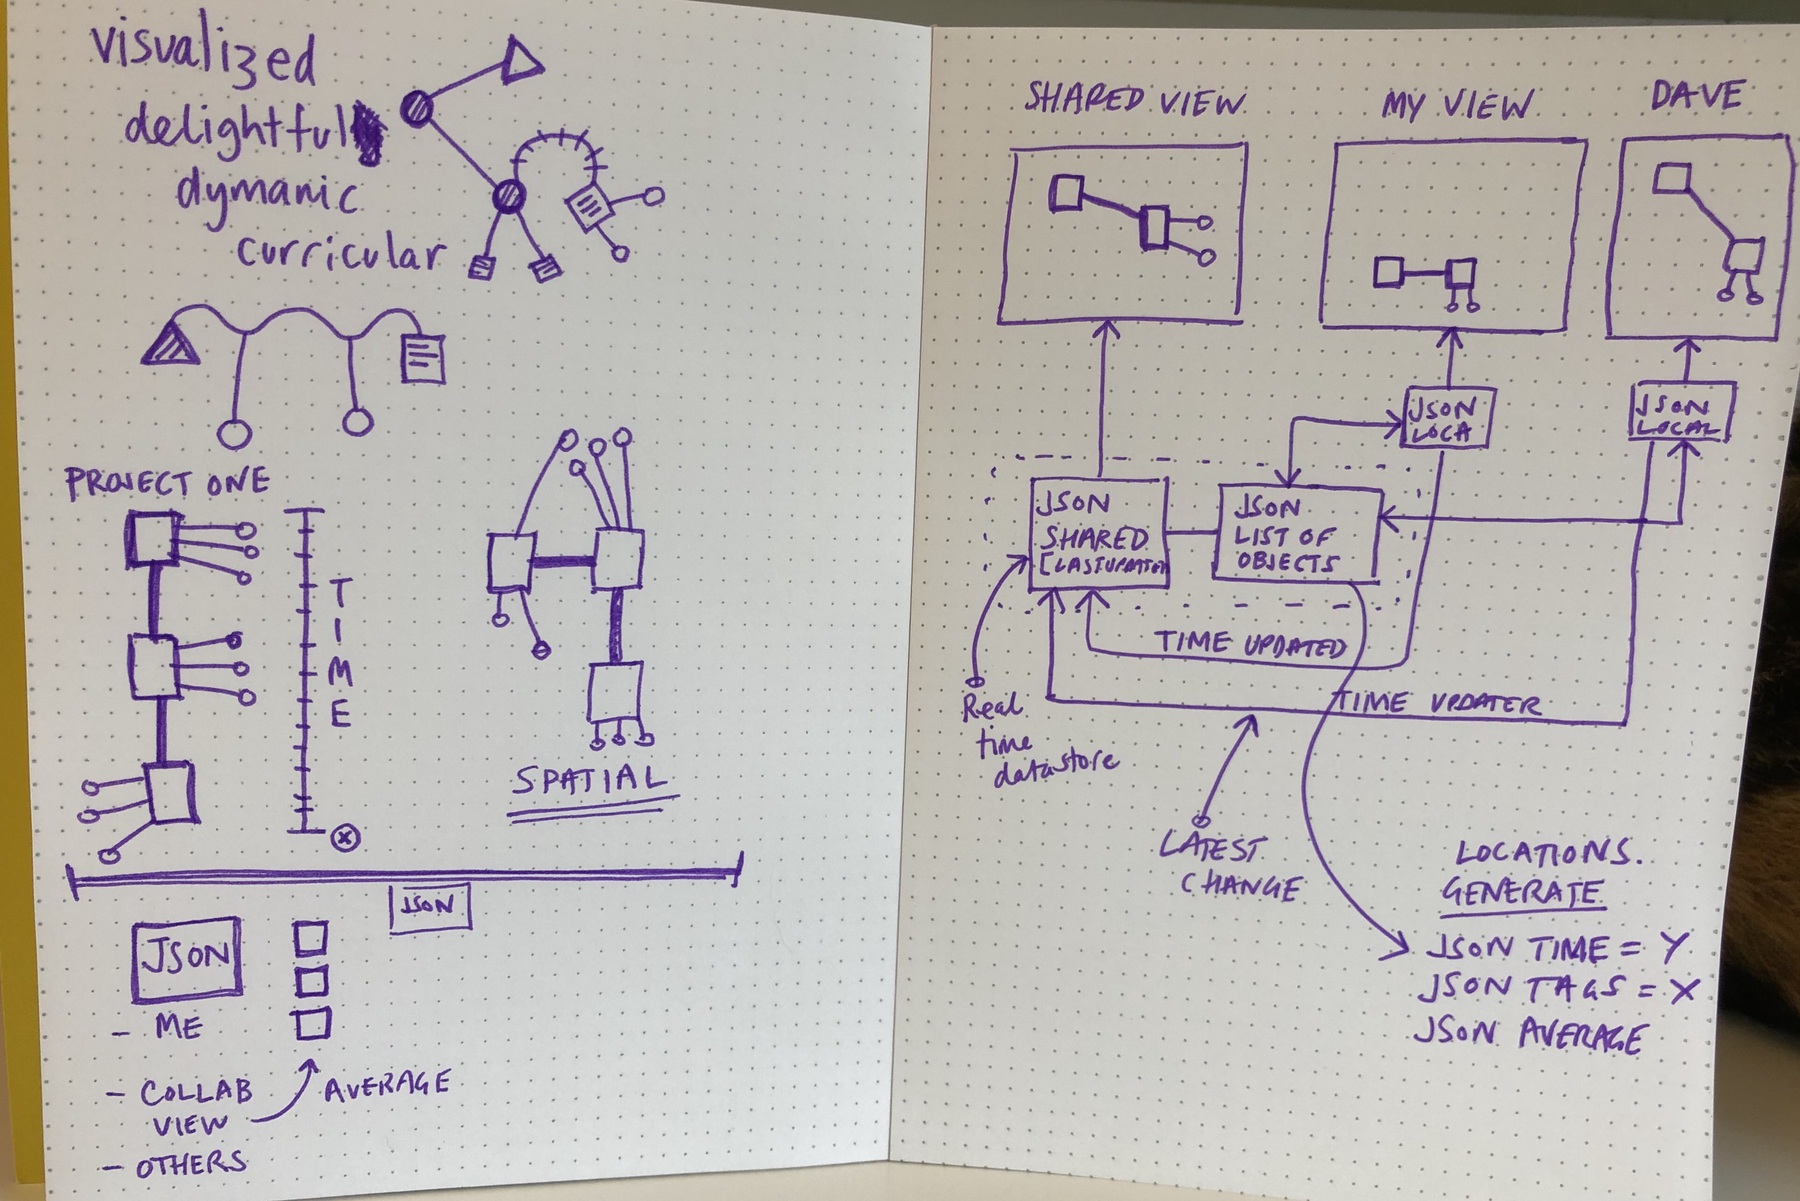 visualized
delightful
dymanic
curricular
PROJECT ONE
TIME
SPATIAL
JSON
JSON
- ME
- COLLAB
VIEW
AVERAGE
- OTHERS
SHARED VIEW
MY VIEW
DAVE
JSON
LOCA
JSON
LOCAL
JSON
SHARED
[LASTUPDATED
JSON
LIST OF
OBJECTS
TIME UPDATED
TIME UPDATER
Real
time
datastore
LATEST
CHANGE
LOCATIONS.
GENERATE
JSON TIME = Y
JSON TAGS = X
JSON AVERAGE